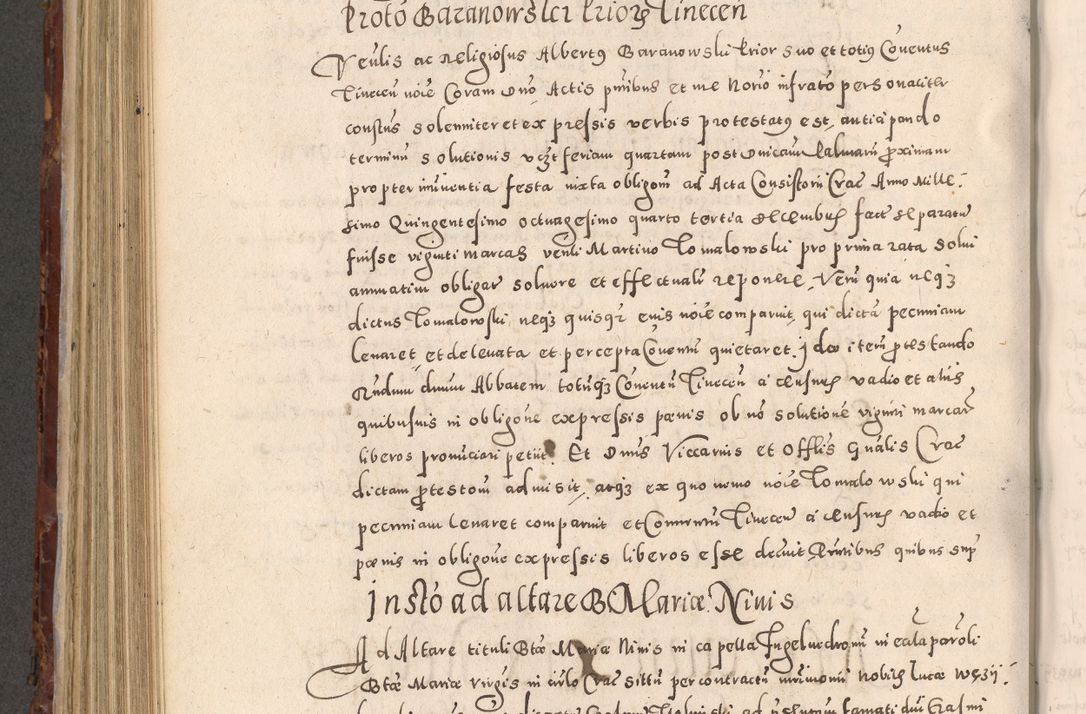 Protõ Baranowski Prior Tinecen
Venlis ac Religiosus Albertg Baranowski Prior suo et totig Conventus
Tinecen noie Coram dno Actis pntibus et me Norio infrato personaliter
constus solemniter et expressis verbis protestatg est, anticipando
terminu solutionis vczt feriam quartam post dnicam Palmaru proximam
propter iminentia festa iuxta obligom ad Acta Consistorii Crac Anno Mille-
simo Quingentesimo octuagesimo quarto tertia decembus fact separatu
fuisse viginti marcas venli Martino Tomalowski pro prima rata solui
annuatim obligat soluere et effectualr reponere, Veru quia neqz
dictus Tomalowski neqz quisqz eius noie comparuit, qui dicta pecuniam
leuaret et de leuata et percepta Conventu quietaret, ideo iteru protestando
Rndum dnum Abbatem totuqz Conventu Tinecen a censuris vadio et aliis
quibusuis in obligone expressis pœnis ob no solutione viginti marcar
liberos pronuciari petiit. Et Dnus Viccarius et Offlis Gnalis Crac
dictam protestom admisit, atqz ex quo nemo noie Tomalowski qui
pecuniam leuaret comparuit et Conventu Tinecen a censuris vadio et
pœnis in obligone expressis liberos esse decreuit Pntibus quibus sup
Instõ ad altare B Mariæ Niuis
Ad Altare tituli Btæ Mariæ Niuis in capella Ingeluedronu in eccla paroli
Btæ Mariæ Virgis in circlo Crac situ per contractu mrimonii nobilis Lucæ